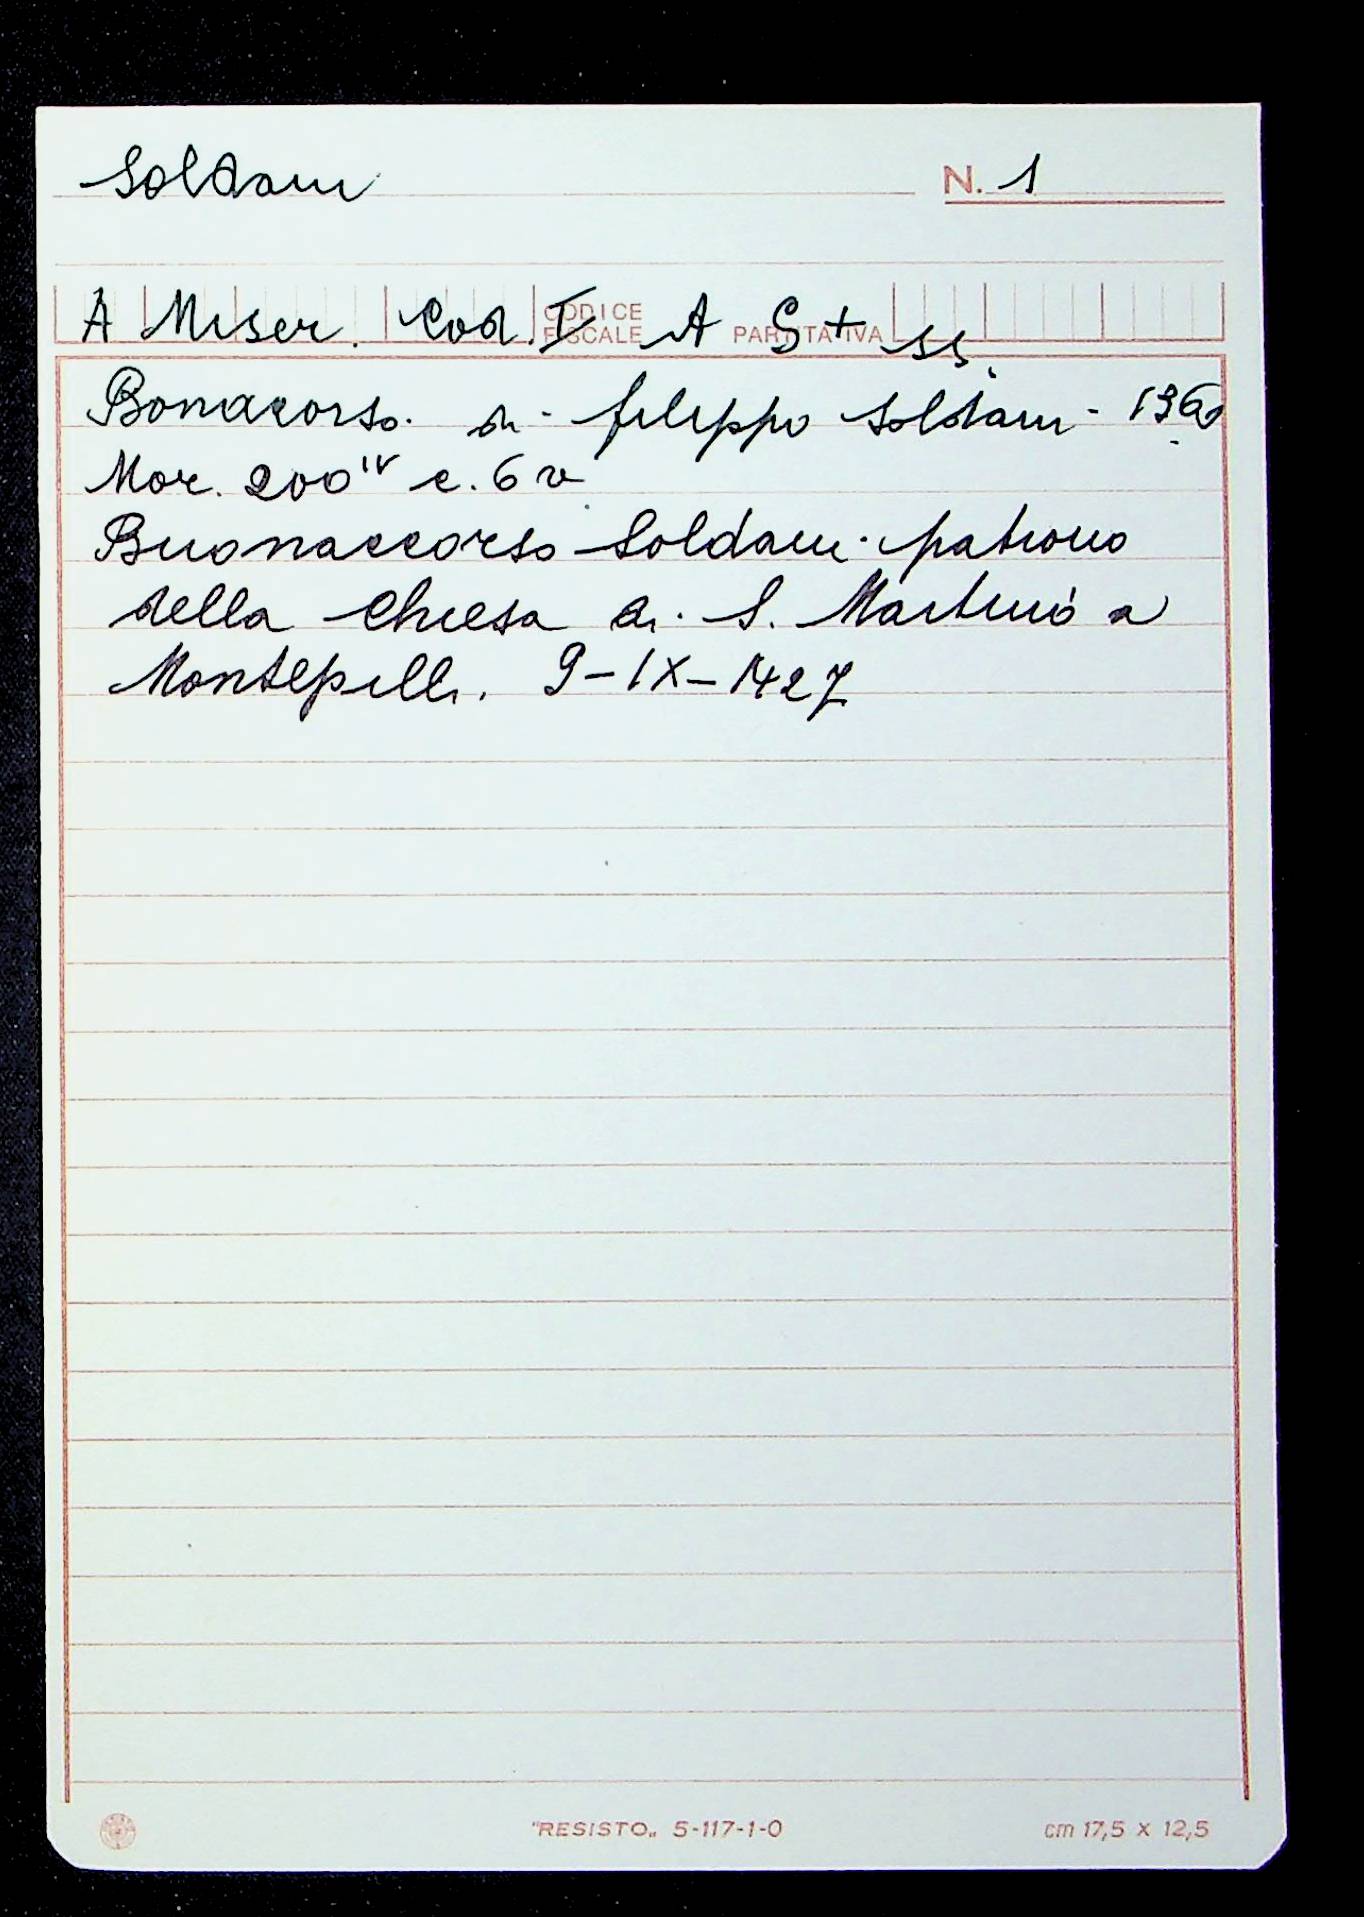 Soldani N. 1
A Miser. Cod. I A S + ss.
CODICE FISCALE PARTITA IVA
Bonacorso. di filippo Soldani - 1360
Mor. 200 IV c. 6 v
Buonaccorso Soldani patrono
della Chiesa di S. Martino a
Montepilli. 9-IX-1427
"RESISTO„ 5-117-1-0 cm 17,5 x 12,5